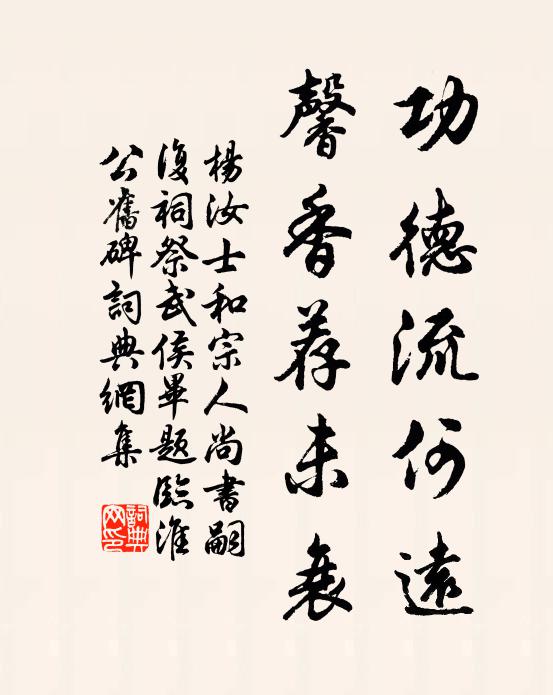 功德流何遠
馨香荐未衰
楊汝士和宗人尚書嗣
復祠祭武侯畢題臨淮
公舊碑詞典網集
詞典
网印